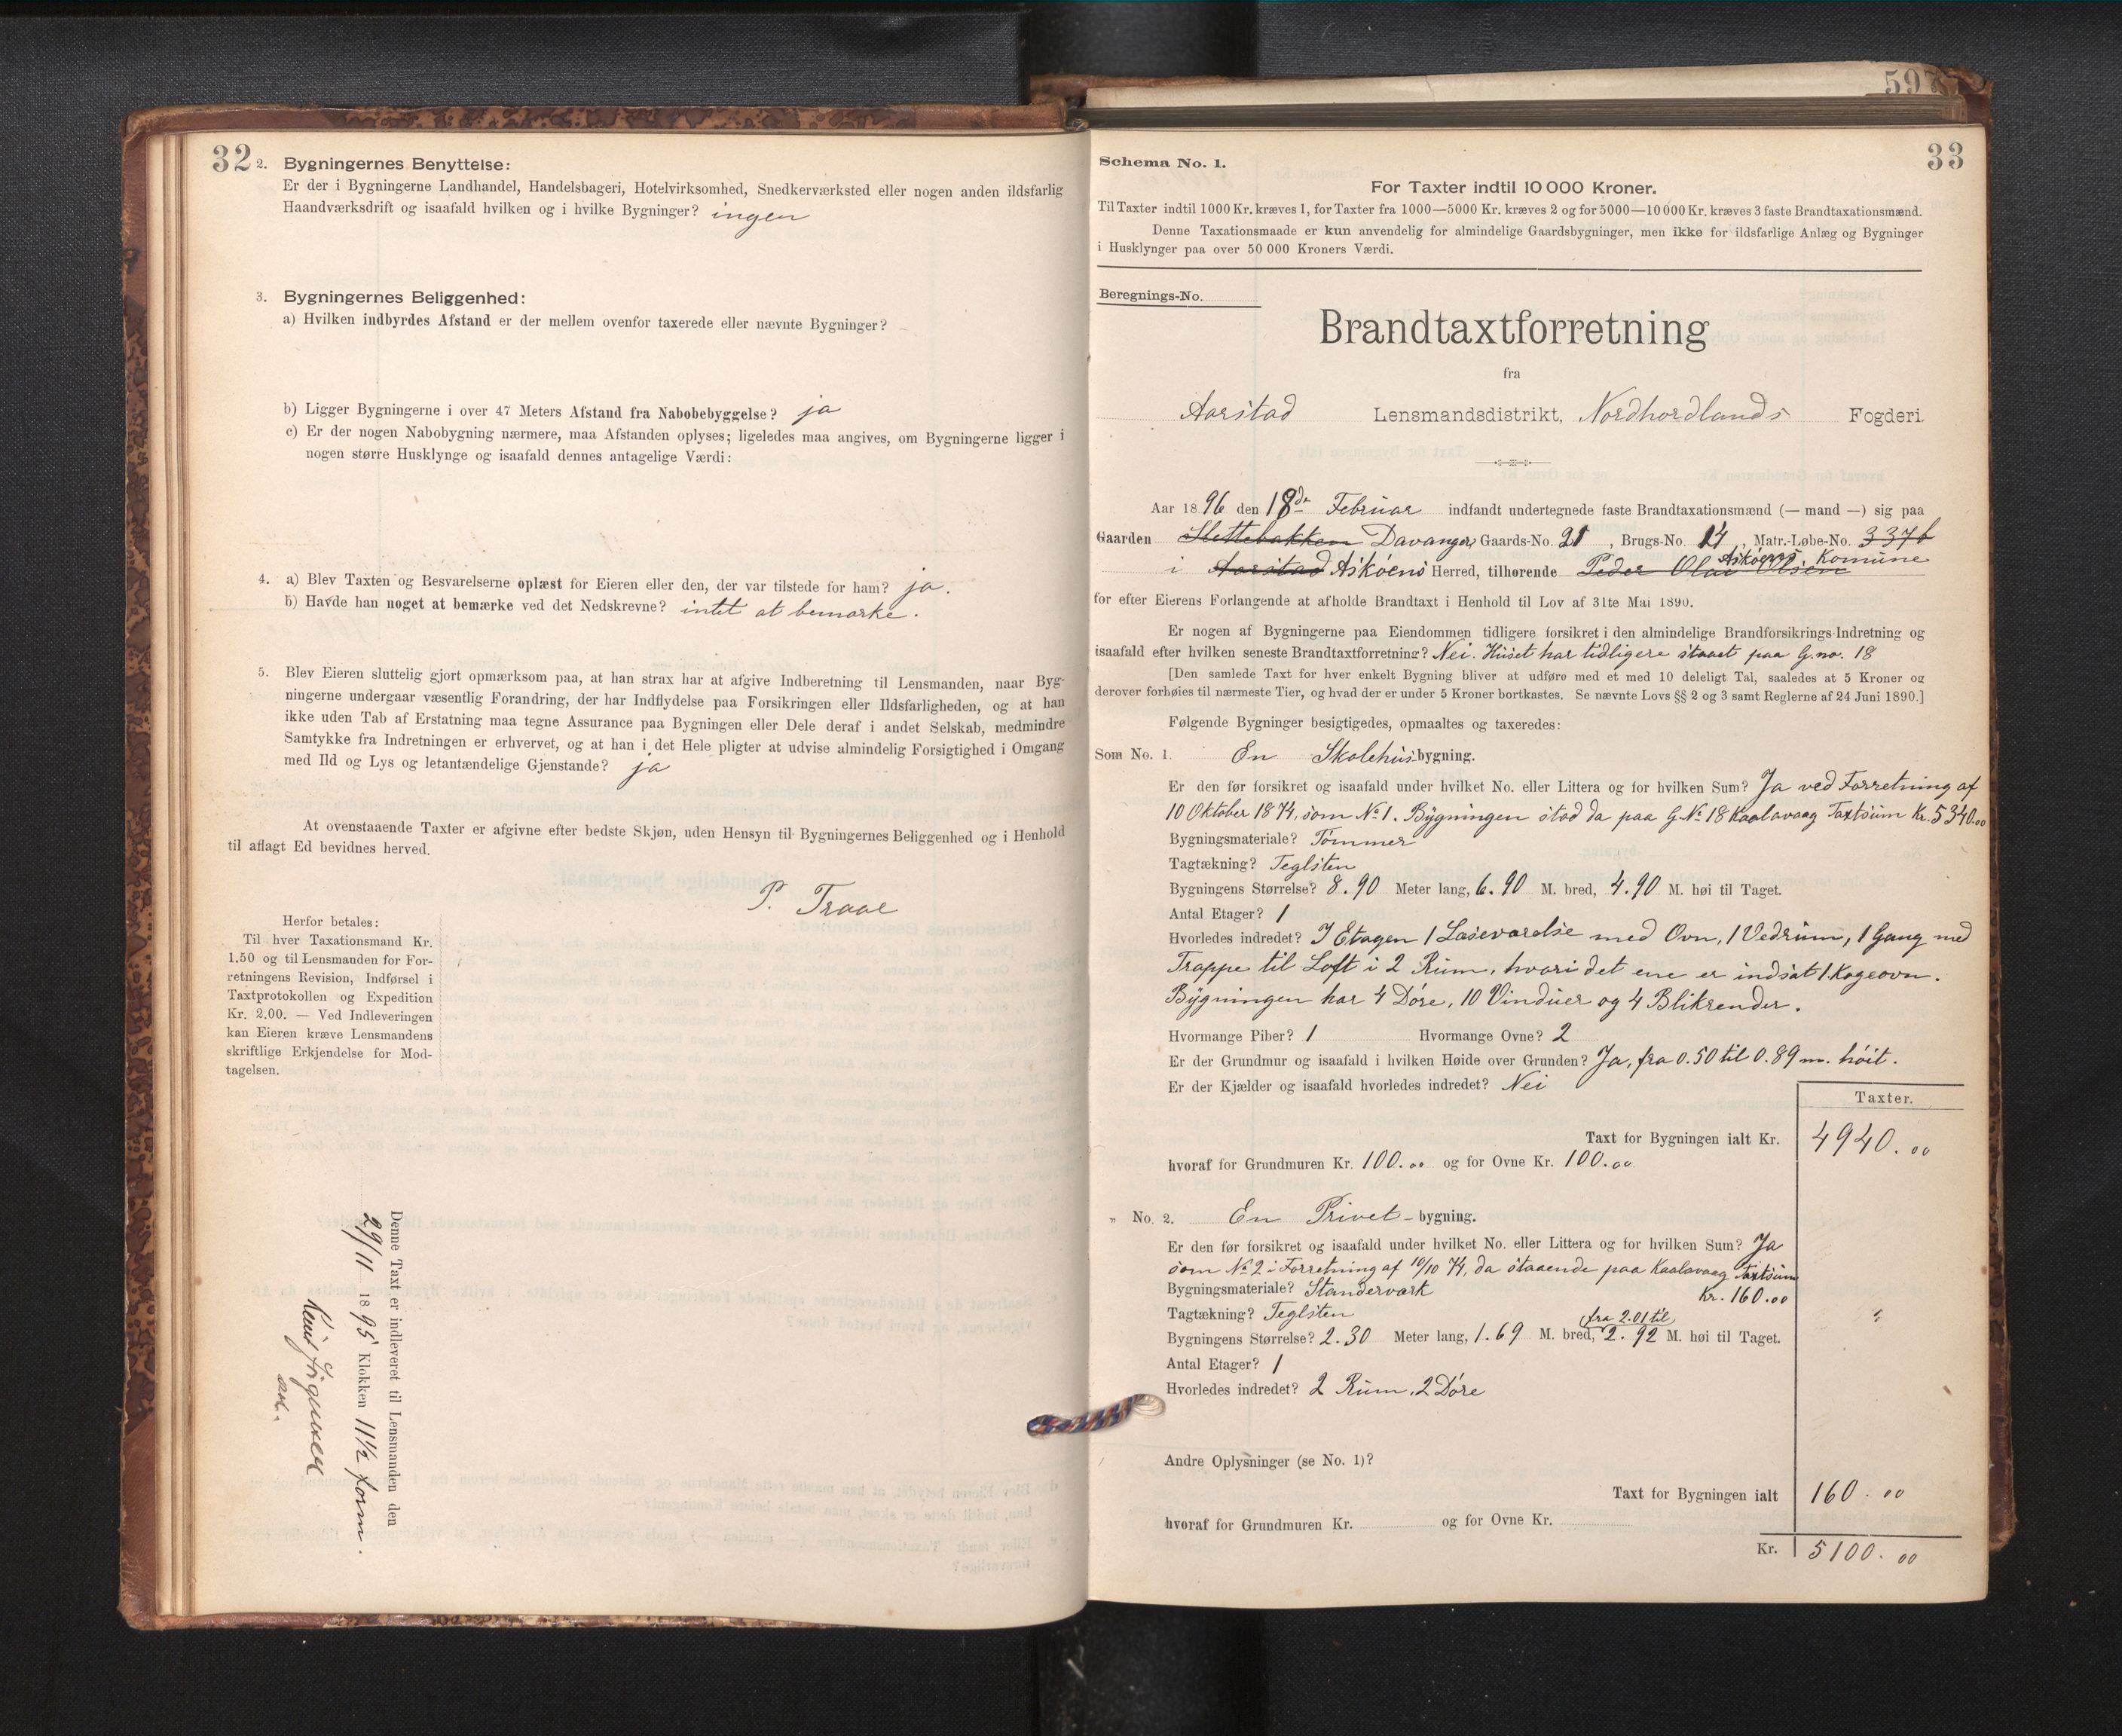 32
2. Bygningernes Benyttelse:
Er der i Bygningerne Landhandel, Handelsbageri, Hotelvirksomhed, Snedkerværksted eller nogen anden ildsfarlig
Haandværksdrift og isaafald hvilken og i hvilke Bygninger? ingen
3. Bygningernes Beliggenhed:
a) Hvilken indbyrdes Afstand er der mellem ovenfor taxerede eller nævnte Bygninger?
b) Ligger Bygningerne i over 47 Meters Afstand fra Nabobebyggelse? ja
c) Er der nogen Nabobygning nærmere, maa Afstanden oplyses; ligeledes maa angives, om Bygningerne ligger i
nogen større Husklynge og isaafald dennes antagelige Værdi:
4. a) Blev Taxten og Besvarelserne oplæst for Eieren eller den, der var tilstede for ham? ja.
b) Havde han noget at bemærke ved det Nedskrevne? intet at bemærke.
5. Blev Eieren sluttelig gjort opmærksom paa, at han strax har at afgive Indberetning til Lensmanden, naar Byg-
ningerne undergaar væsentlig Forandring, der har Indflydelse paa Forsikringen eller Ildsfarligheden, og at han
ikke uden Tab af Erstatning maa tegne Assurance paa Bygningen eller Dele deraf i andet Selskab, medmindre
Samtykke fra Indretningen er erhvervet, og at han i det Hele pligter at udvise almindelig Forsigtighed i Omgang
med Ild og Lys og letantændelige Gjenstande? ja
At ovenstaaende Taxter er afgivne efter bedste Skjøn, uden Hensyn til Bygningernes Beliggenhed og i Henhold
til aflagt Ed bevidnes herved.
P. Traae
Herfor betales:
Til hver Taxationsmand Kr.
1.50 og til Lensmanden for For-
retningens Revision, Indførsel i
Taxtprotokollen og Expedition
Kr. 2.00. — Ved Indleveringen
kan Eieren kræve Lensmandens
skriftlige Erkjendelse for Mod-
tagelsen.
Denne Taxt er indleveret til Lensmanden den
29/11 1895 Klokken 11½ form.
597
33
Schema No. 1.
For Taxter indtil 10 000 Kroner.
Til Taxter indtil 1000 Kr. kræves 1, for Taxter fra 1000—5000 Kr. kræves 2 og for 5000—10 000 Kr. kræves 3 faste Brandtaxationsmænd.
Denne Taxationsmaade er kun anvendelig for almindelige Gaardsbygninger, men ikke for ildsfarlige Anlæg og Bygninger
i Husklynger paa over 50 000 Kroners Værdi.
Beregnings-No.
Brandtaxtforretning
fra
Aarstad Lensmandsdistrikt, Nordhordlands Fogderi.
Aar 1896 den 18de Februar indfandt undertegnede faste Brandtaxationsmænd (— mand —) sig paa
Gaarden Slettebakken Davanger, Gaards-No. 21, Brugs-No. 14, Matr.-Løbe-No. 337b
i Aarstad Askøens Herred, tilhørende Peder Olai Olsen Askøens Komune
for efter Eierens Forlangende at afholde Brandtaxt i Henhold til Lov af 31te Mai 1890.
Er nogen af Bygningerne paa Eiendommen tidligere forsikret i den almindelige Brandforsikrings-Indretning og
isaafald efter hvilken seneste Brandtaxtforretning? Nei. Huset har tidligere staaet paa G.no. 18
[Den samlede Taxt for hver enkelt Bygning bliver at udføre med et med 10 deleligt Tal, saaledes at 5 Kroner og
derover forhøies til nærmeste Tier, og hvad der er under 5 Kroner bortkastes. Se nævnte Lovs §§ 2 og 3 samt Reglerne af 24 Juni 1890.]
Følgende Bygninger besigtigedes, opmaaltes og taxeredes:
Som No. 1. En Skolehusbygning.
Er den før forsikret og isaafald under hvilket No. eller Littera og for hvilken Sum? Ja ved Forretning af
10 Oktober 1874, som No 1. Bygningen stod da paa G No 18 Kaalavaag Taxtsum Kr. 5340.00
Bygningsmateriale? Tømmer
Tagtækning? Teglsten
Bygningens Størrelse? 8.90 Meter lang, 6.90 M. bred, 4.90 M. høi til Taget.
Antal Etager? 1
Hvorledes indredet? I Etagen 1 Læseværelse med Ovn, 1 Vedrum, 1 Gang med
Trappe til Loft i 2 Rum, hvori det ene er indsat 1 Kogeovn.
Bygningen har 4 Døre, 10 Vinduer og 4 Blikrender.
Hvormange Piber? 1 Hvormange Ovne? 2
Er der Grundmur og isaafald i hvilken Høide over Grunden? Ja, fra 0.50 til 0.89 m. høit.
Er der Kjælder og isaafald hvorledes indredet? Nei
Taxter.
Taxt for Bygningen ialt Kr. 4940.00
hvoraf for Grundmuren Kr. 100.00 og for Ovne Kr. 100.00
„ No. 2. En Privet-bygning.
Er den før forsikret og isaafald under hvilket No. eller Littera og for hvilken Sum? Ja
som No 2 i Forretning af 10/10 74, da staaende paa Kaalavaag Taxtsum
Kr. 160.00
Bygningsmateriale? Standerværk
Tagtækning? Teglsten
fra 2.01 til
Bygningens Størrelse? 2.30 Meter lang, 1.69 M. bred, 2.92 M. høi til Taget.
Antal Etager? 1
Hvorledes indredet? 2 Rum, 2 Døre
Andre Oplysninger (se No. 1)?
Taxt for Bygningen ialt 160.00
hvoraf for Grundmuren Kr. og for Ovne Kr.
Kr. 5100.00